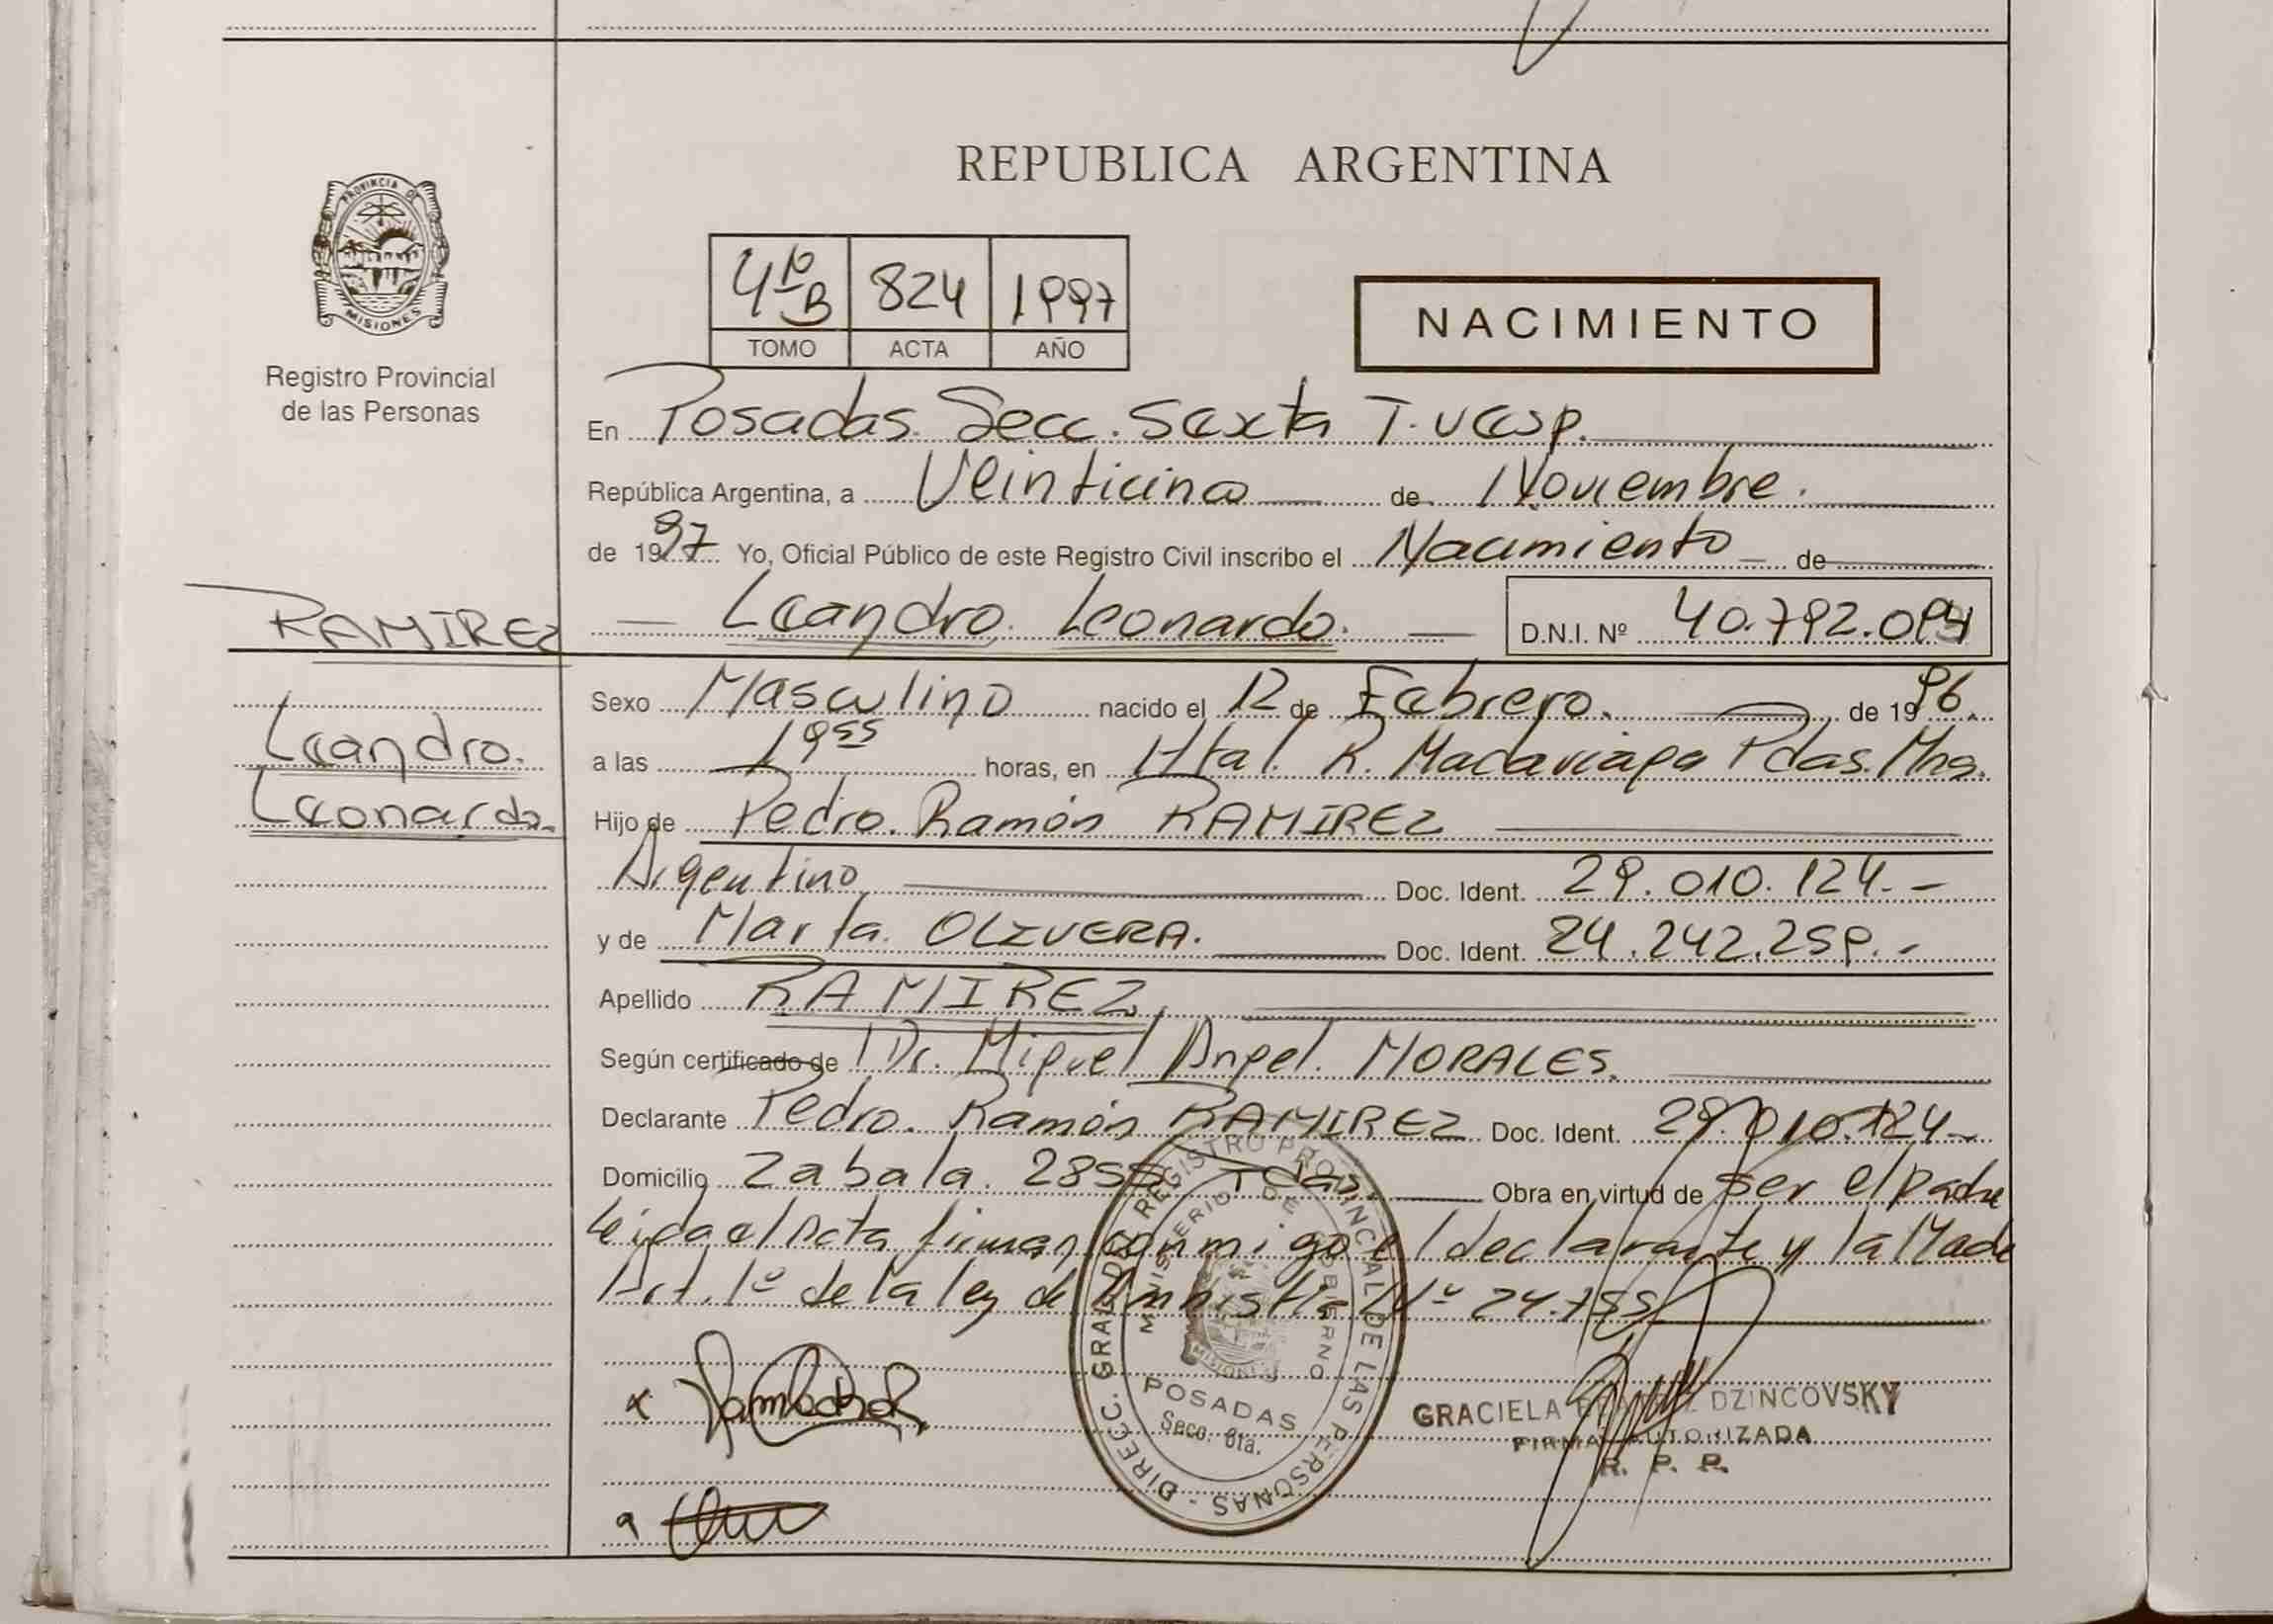 REPUBLICA ARGENTINA
PROVINCIA DE MISIONES
Registro Provincial
de las Personas
4º B 824 1997
TOMO ACTA AÑO
NACIMIENTO
En Posadas. Secc. Sexta T. Vesp.
República Argentina, a Veinticinco de Noviembre.
de 1997 Yo, Oficial Público de este Registro Civil inscribo el Nacimiento de
RAMIREZ
Leandro.
Leonardo.
Leandro. Leonardo. D.N.I. Nº 40.792.094
Sexo Masculino nacido el 12 de Febrero. de 1996.
a las 19 55 horas, en Htal. R. Madariaga Pdas. Mns.
Hijo de Pedro. Ramón RAMIREZ
Argentino Doc. Ident. 29.010.124.-
y de Marta. OLIVERA. Doc. Ident. 24.242.259.-
Apellido RAMIREZ.
Según certificado de Dr. Miguel Angel. MORALES.
Declarante Pedro. Ramón RAMIREZ Doc. Ident. 29.010.124-
Domicilio Zabala. 2855. Pdas. Obra en virtud de ser el padre
Leida el Acta firman conmigo el declarante y la Madre
Art. 1º de la ley de Amnistia Nº 24.755
DIRECC. GRAL. DEL REGISTRO PROVINCIAL DE LAS PERSONAS -
MINISTERIO DE GOBIERNO
MISIONES
POSADAS
Secc. 6ta.
GRACIELA DZINCOVSKY
FIRMA AUTORIZADA
R. P. P.